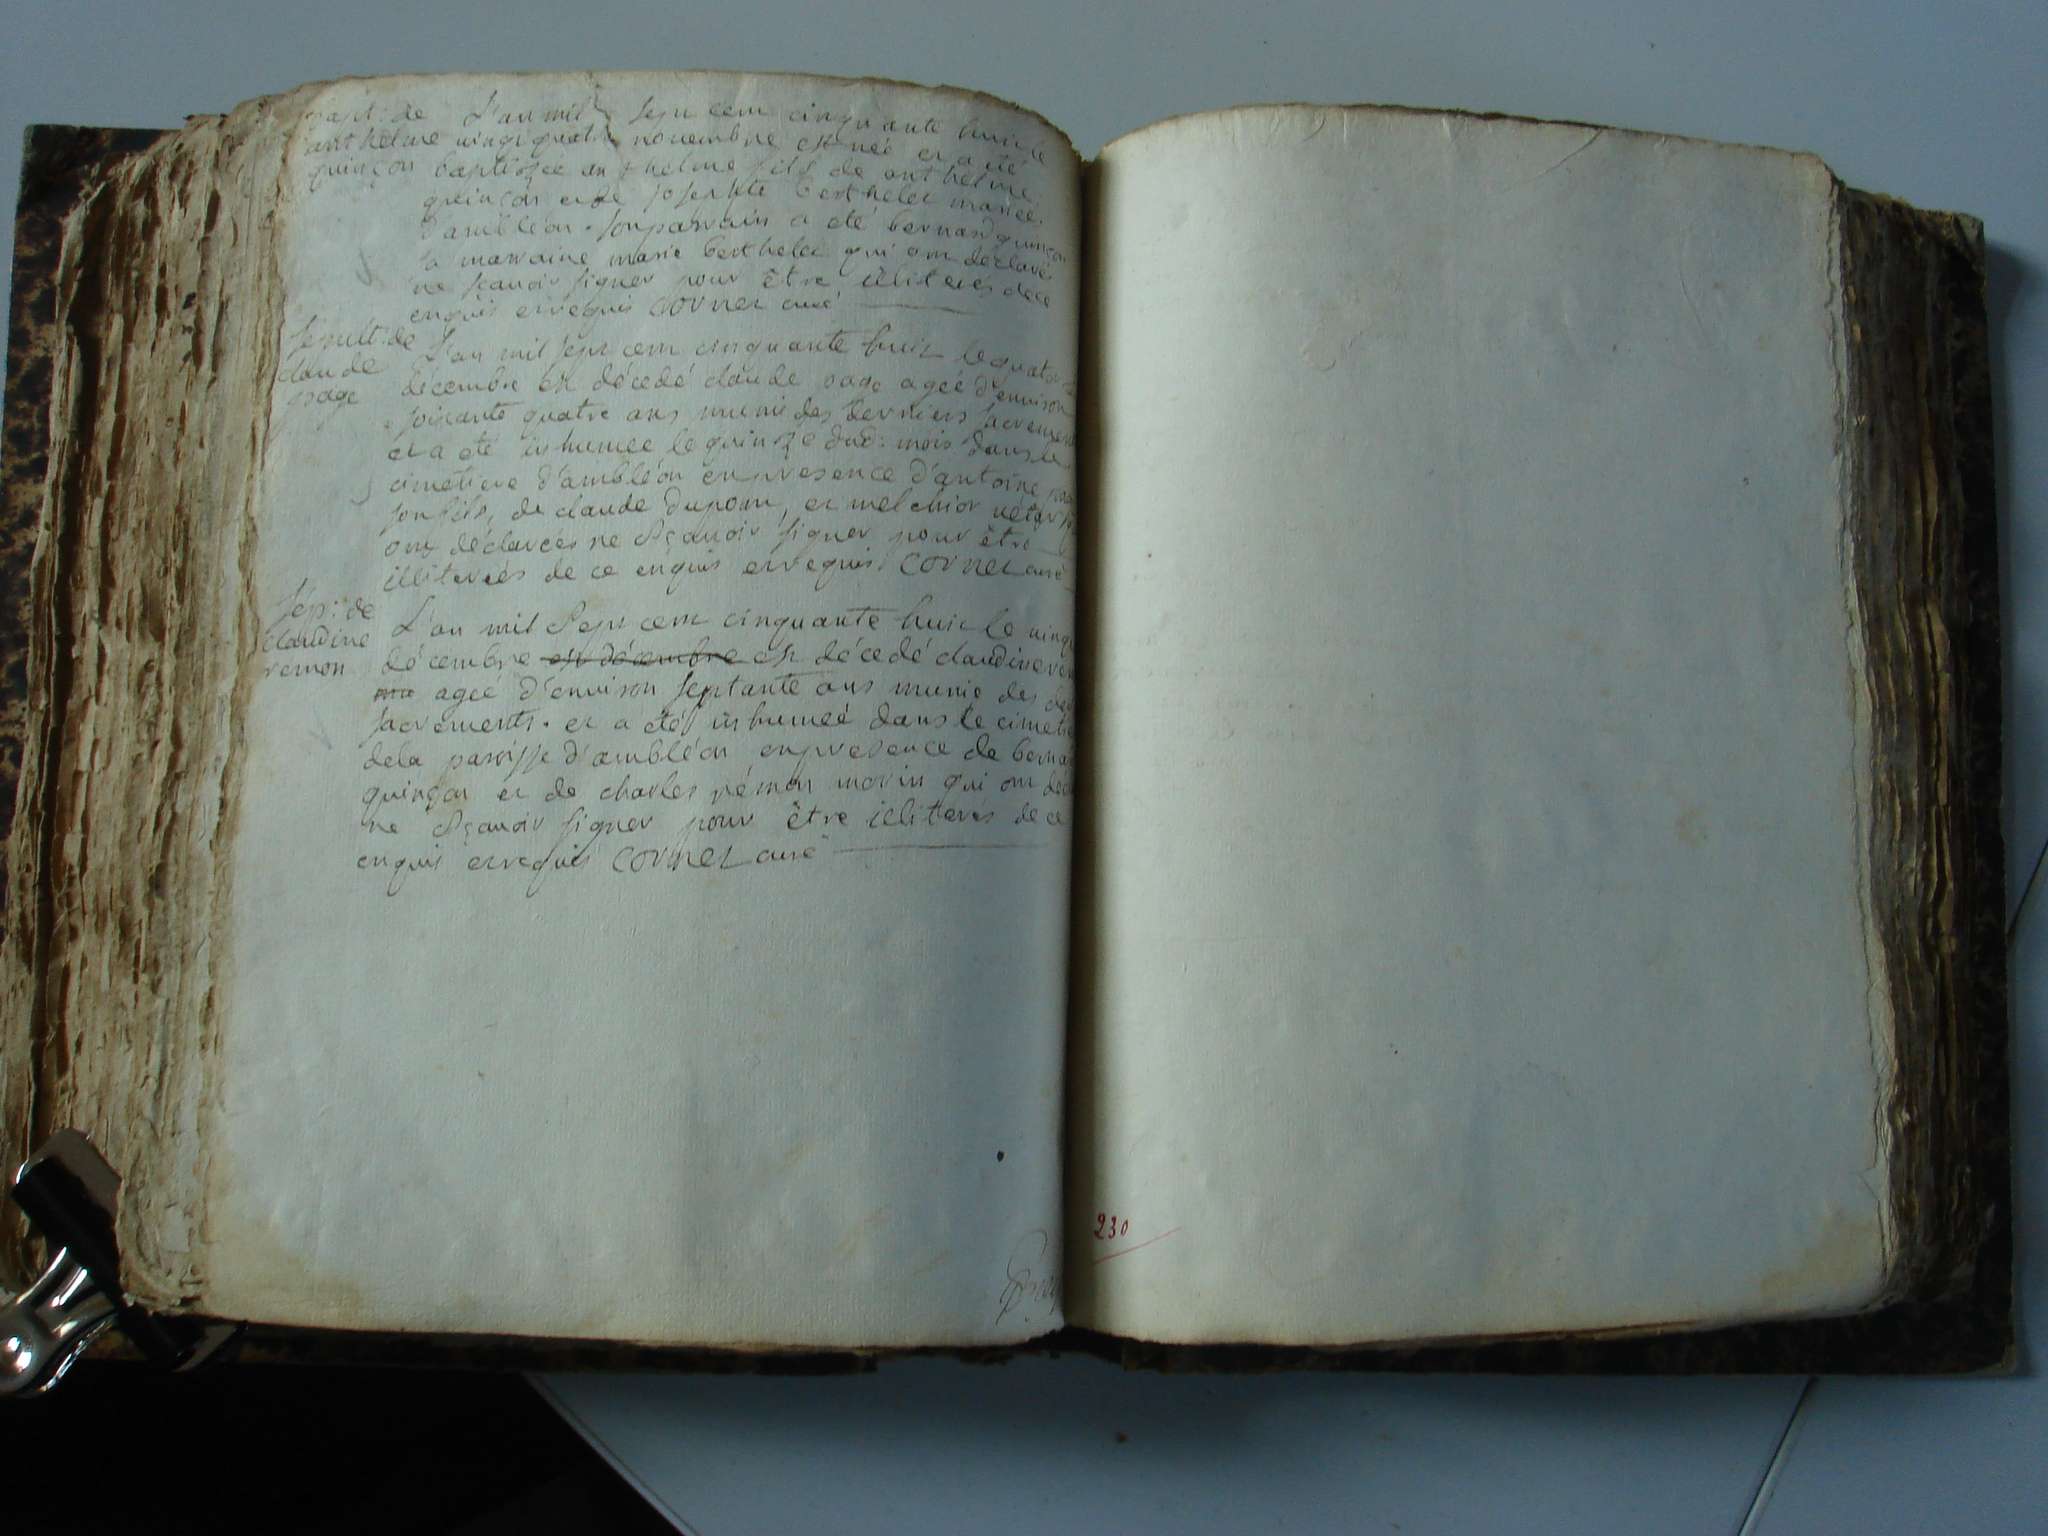 bapt: de
anthelme
quinçon
L'an mil sept cent cinquante huit le
vingt quatre novembre est né et a été
baptisée anthelme fils de anthelme
quinçon et de josephte berthelet mariée
d'ambléon. son parrain a été bernard quinçon
sa marraine marie berthelet qui ont declaré
ne scavoir signer pour être illiterés de ce
enquis et requis cornet curé
sepult: de
claude
page
L'an mil sept cent cinquante huit le quatorze
décembre est décedé claude page ageé d'environ
soixante quatre ans munie des derniers sacrements
et a été inhumée le quinze dud: mois dans le
cimetiere d'ambléon en presence d'antoine
son fils, de claude dupont, et melchior
ont déclarés ne sçavoir signer pour être
illiterés de ce enquis et requis cornet curé
sép: de
claudine
remon
L'an mil sept cent cinquante huit le vingt
décembre est décembre est décedé claudine
ageé d'environ septante ans munie des
sacrements. et a été inhumeé dans le
de la paroisse d'ambléon en presence de
quinçon et de charles rémon morin qui ont
ne sçavoir signer pour être illiterés de ce
enquis et requis cornet curé
230